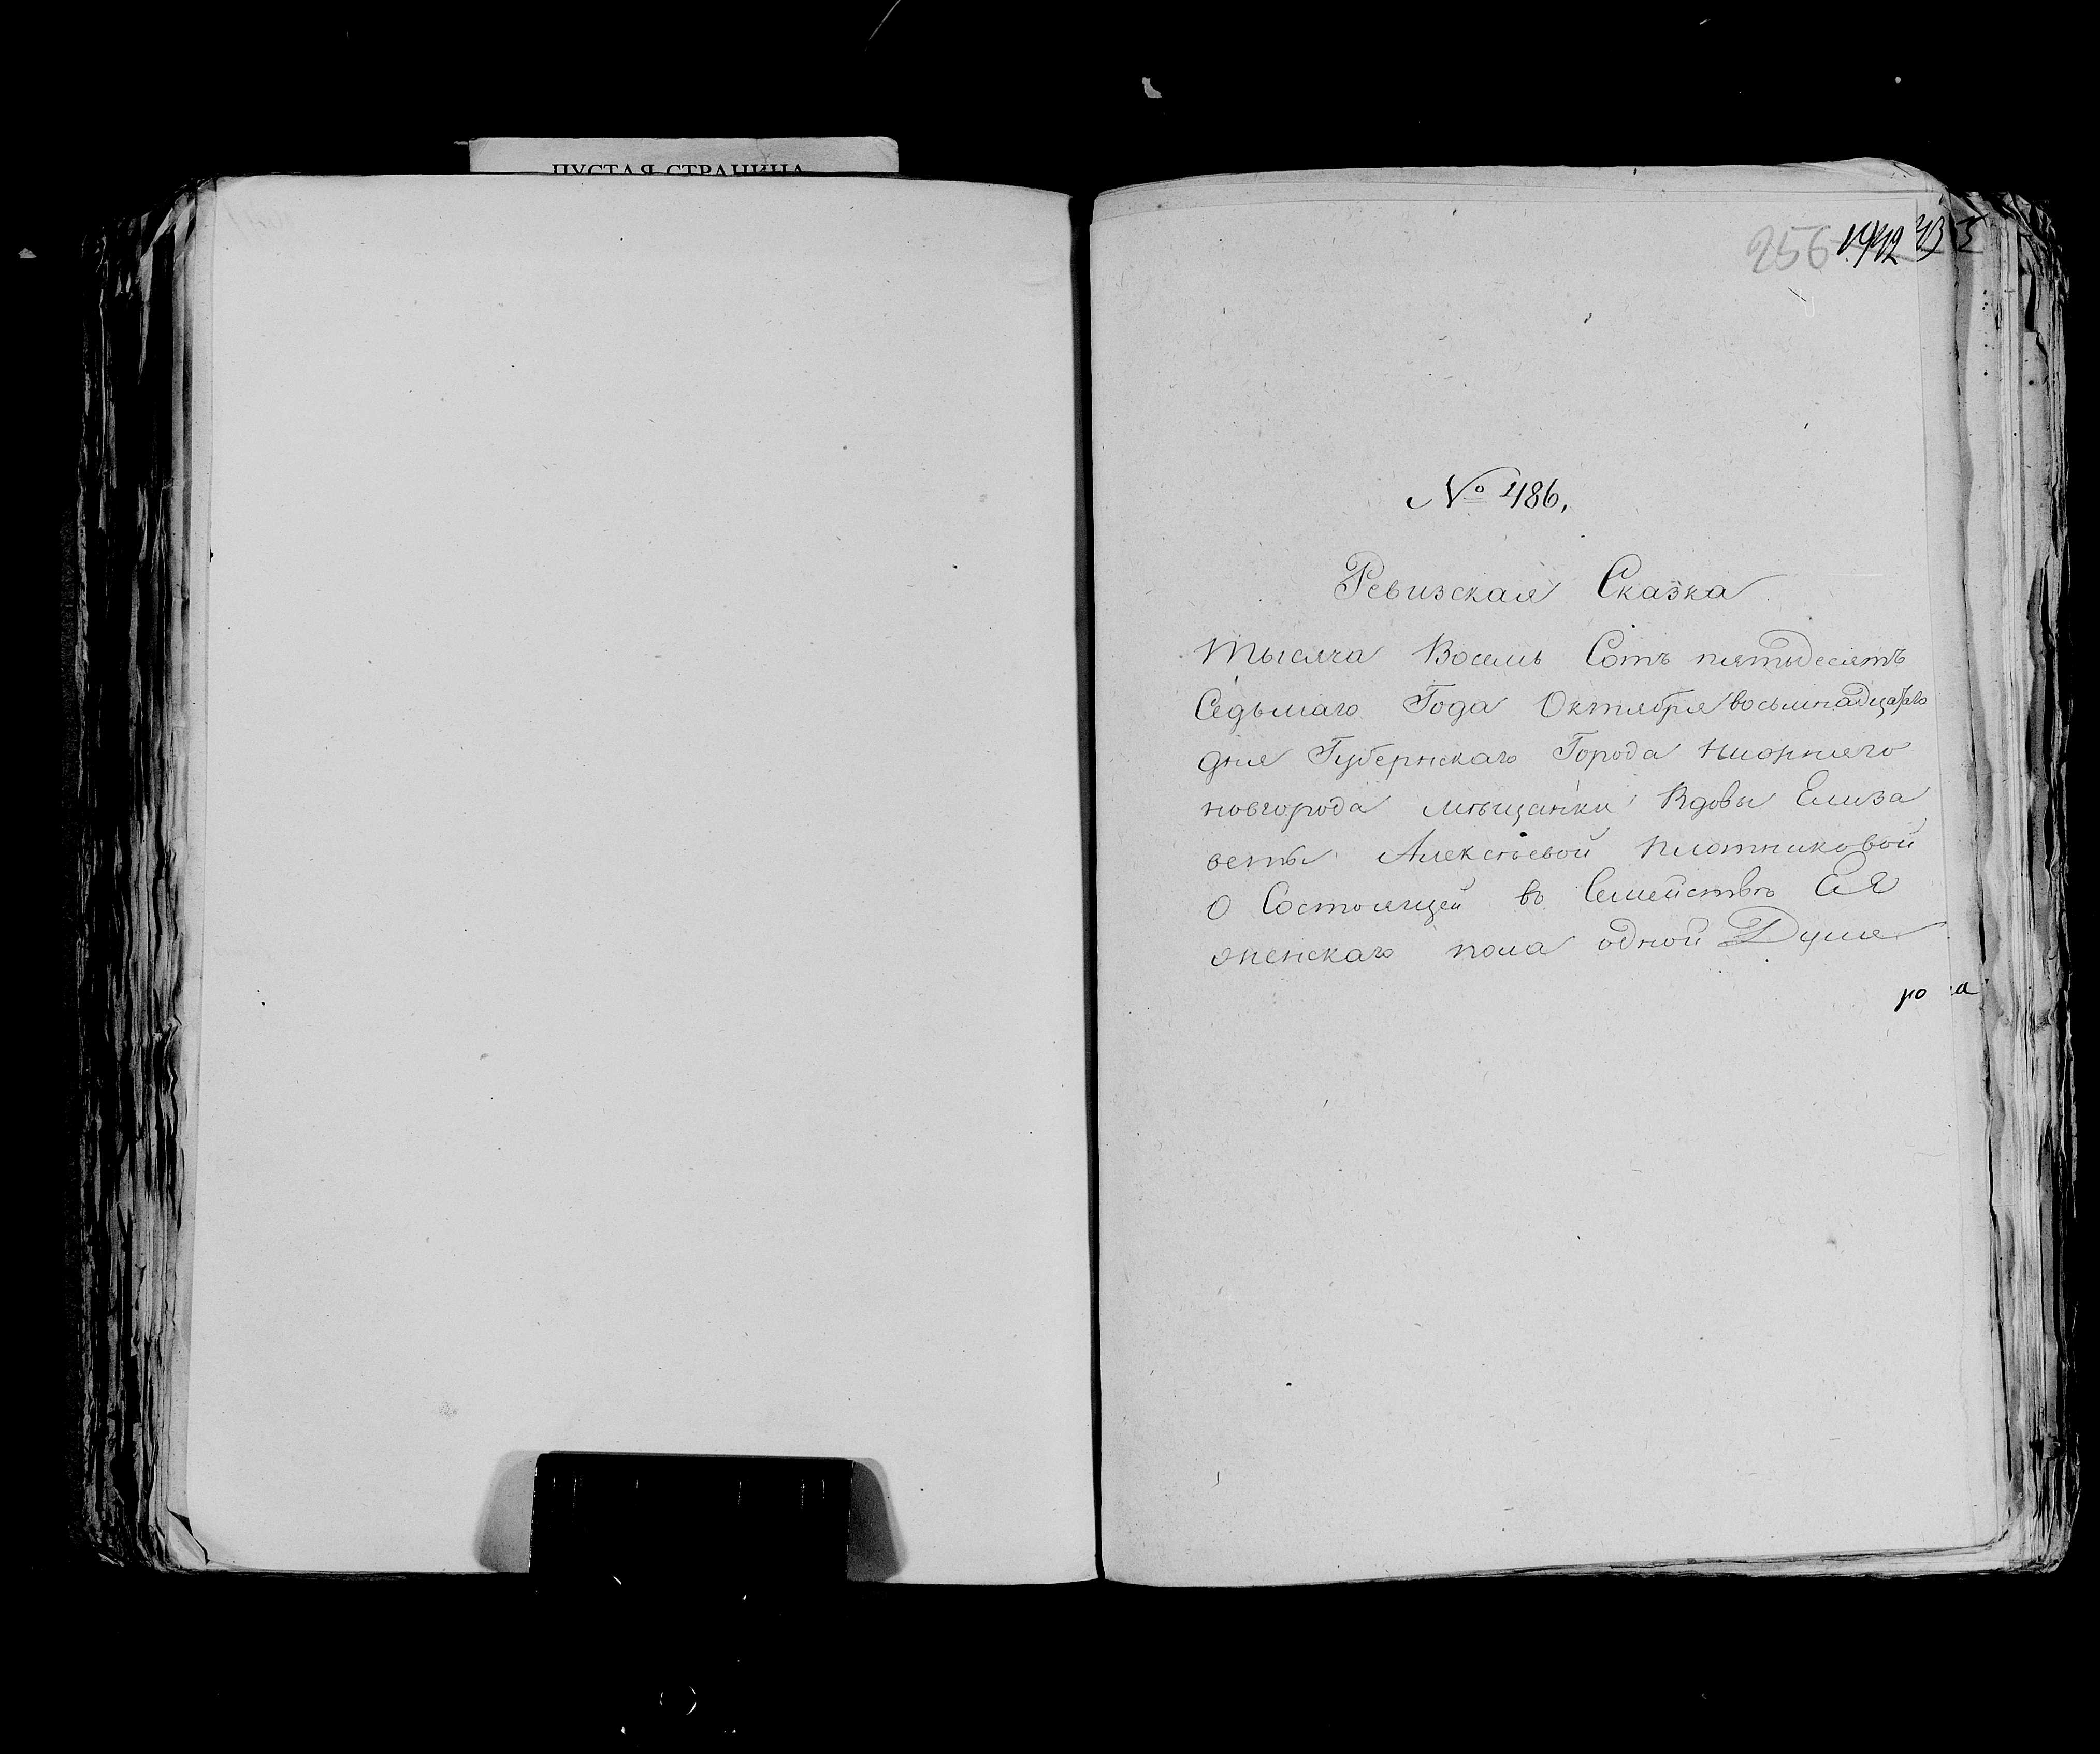 ПУСТАЯ СТРАНИЦА
256
№ 486,
Ревизская Сказка
тысяча Восемь Сотъ пятьдесятъ
Седьмаго Года Октября восьмнадцатаго
дня Губернскаго Города нижняго
новгорода мѣщанки Вдовы Елиза
веты Алексѣевой плотниковой
О Состоящей въ Семействѣ Ея
женскаго пола одной Душе